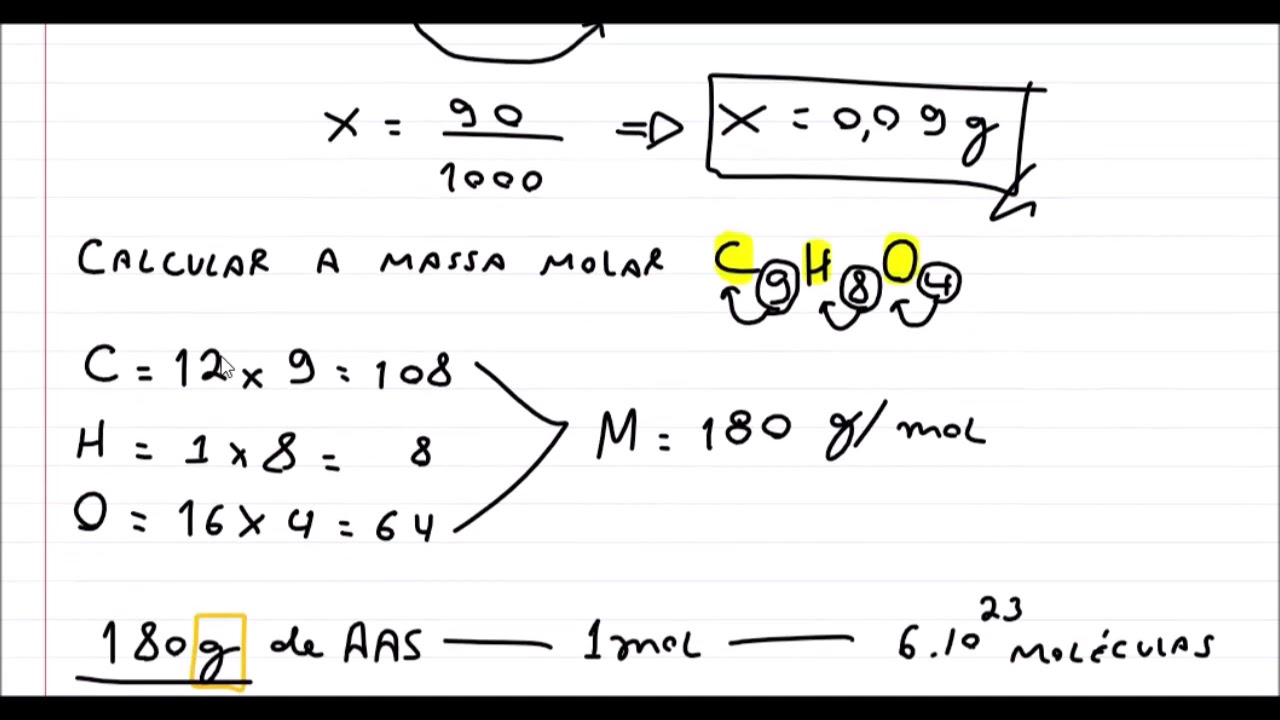 X = 90/1000 => X = 0,09 g
CALCULAR A MASSA MOLAR C9H8O4
C = 12 x 9 = 108
H = 1 x 8 = 8
M = 180 g/mol
O = 16 x 4 = 64
180g de AAS — 1 mol — 6.10^23 MOLÉCULAS